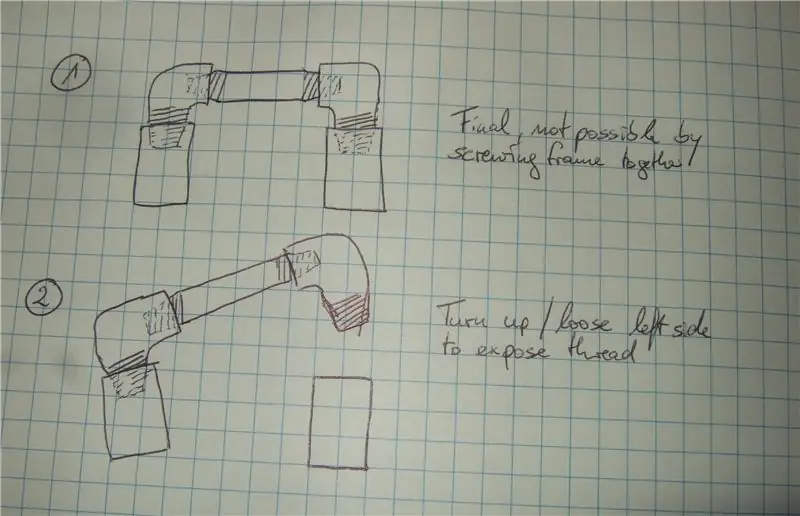 1
Final, not possible by
screwing frame together
2
Turn up / loose left side
to expose thread